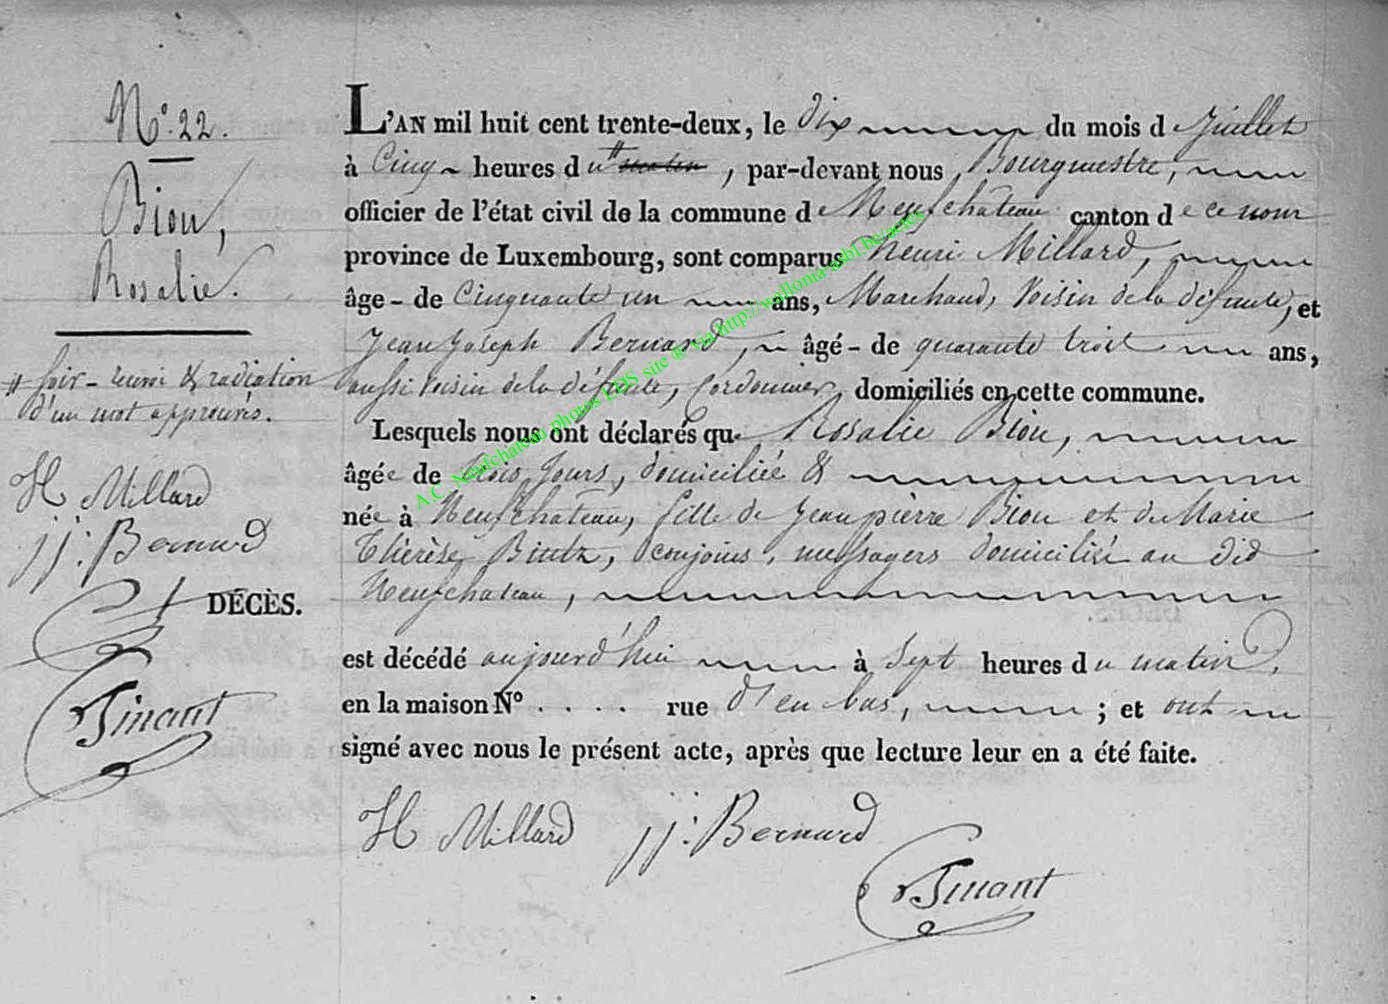 N.° 22.
Biou,
Rosalie.
# soir - renvoi & radiation
d'un mot approuvés.
H Millard
j j: Bernard
Tinant
DÉCÈS.
L'AN mil huit cent trente-deux, le dix du mois d Juillet
à Cinq heures d u # matin, par-devant nous Bourgmestre,
officier de l'état civil de la commune de Neufchateau canton de ce nom
province de Luxembourg, sont comparus henri Millard,
âge - de Cinquante un ans, Marchand, Voisin de la défunte, et
Jean Joseph Bernard, âgé - de quarante trois ans,
aussi voisin de la défunte, Cordonnier, domiciliés en cette commune.
Lesquels nous ont déclarés que Rosalie Biou,
âgée de trois jours, domiciliée &
née à Neufchateau, fille de Jean pierre Biou et de Marie
Thérèse, conjoins, messagers domiciliés au did
Neufchateau,
est décédé aujourd'hui à Sept heures du matin,
en la maison N° . . . . rue d'en bas, ; et ont
signé avec nous le présent acte, après que lecture leur en a été faite.
H Millard j j: Bernard
Tinant
A.C. Neufchateau photos EDS site ® via http://wallonia-asbl.be/actes